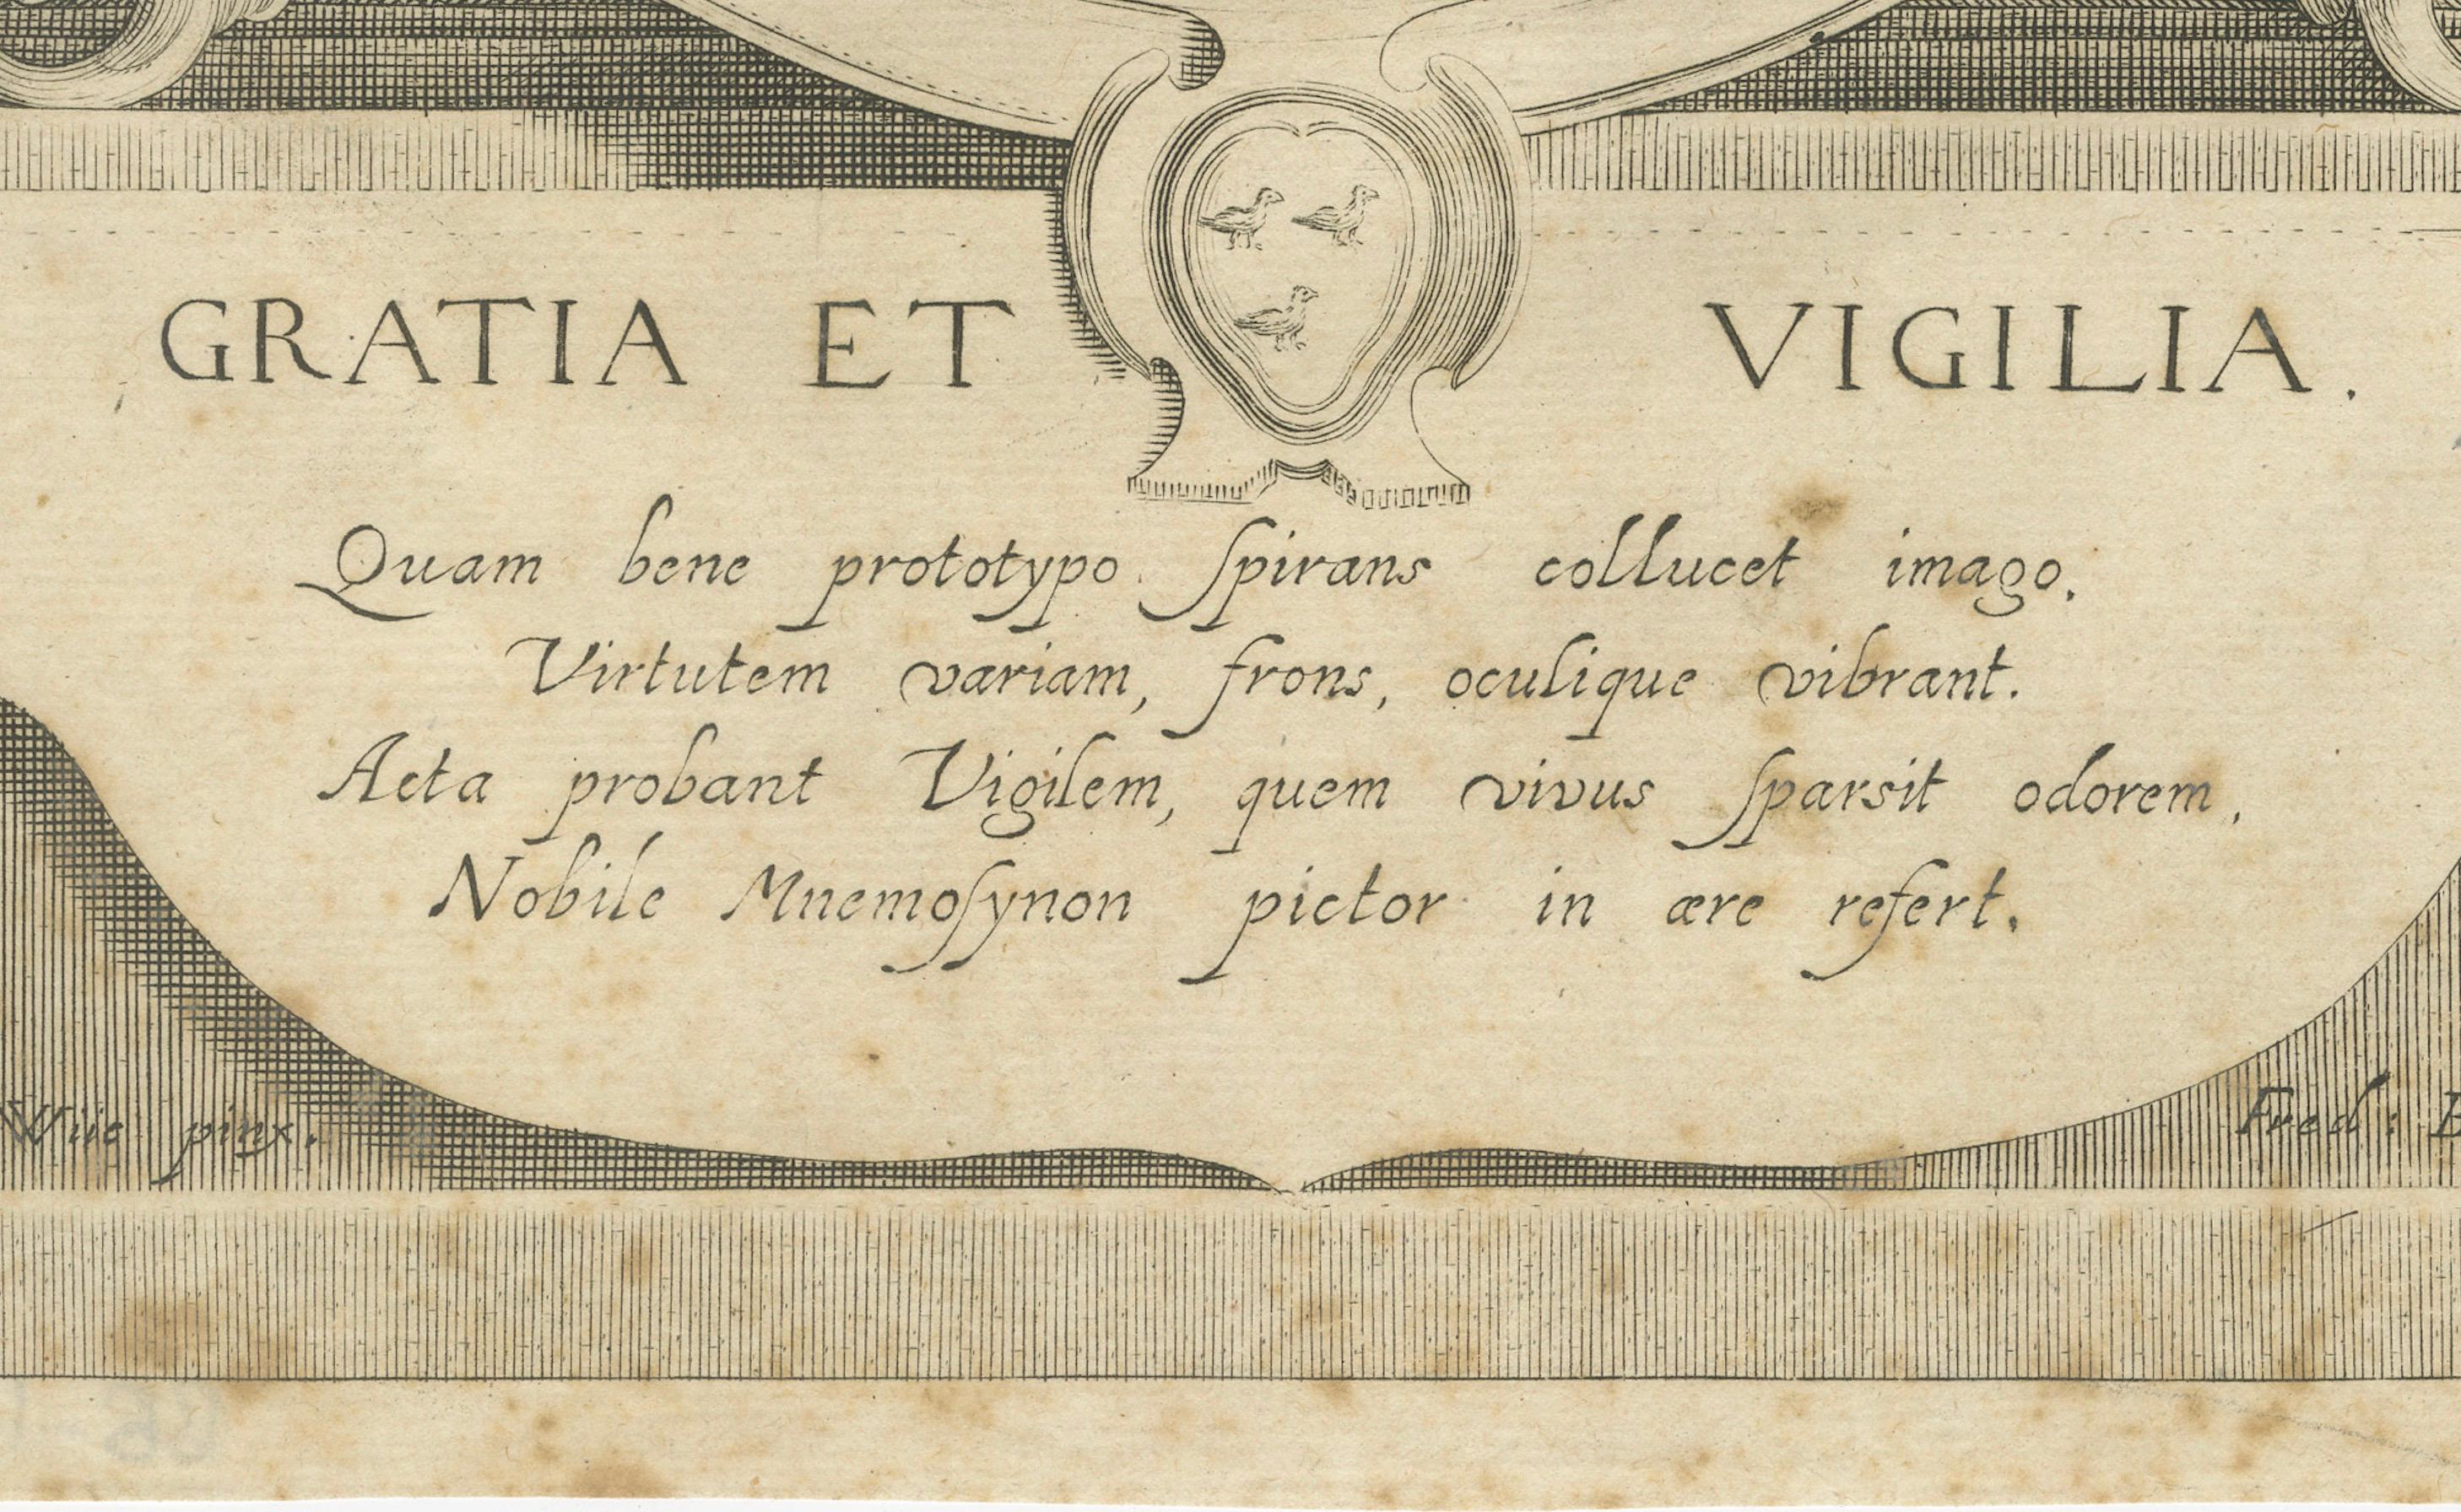 GRATIA ET VIGILIA.
Quam bene prototypo ſpirans collucet imago.
Virtutem variam, frons, oculique vibrant.
Acta probant Vigilem, quem vivus ſparsit odorem,
Nobile Mnemoſynon pictor in ære refert.
pinx. Fred: